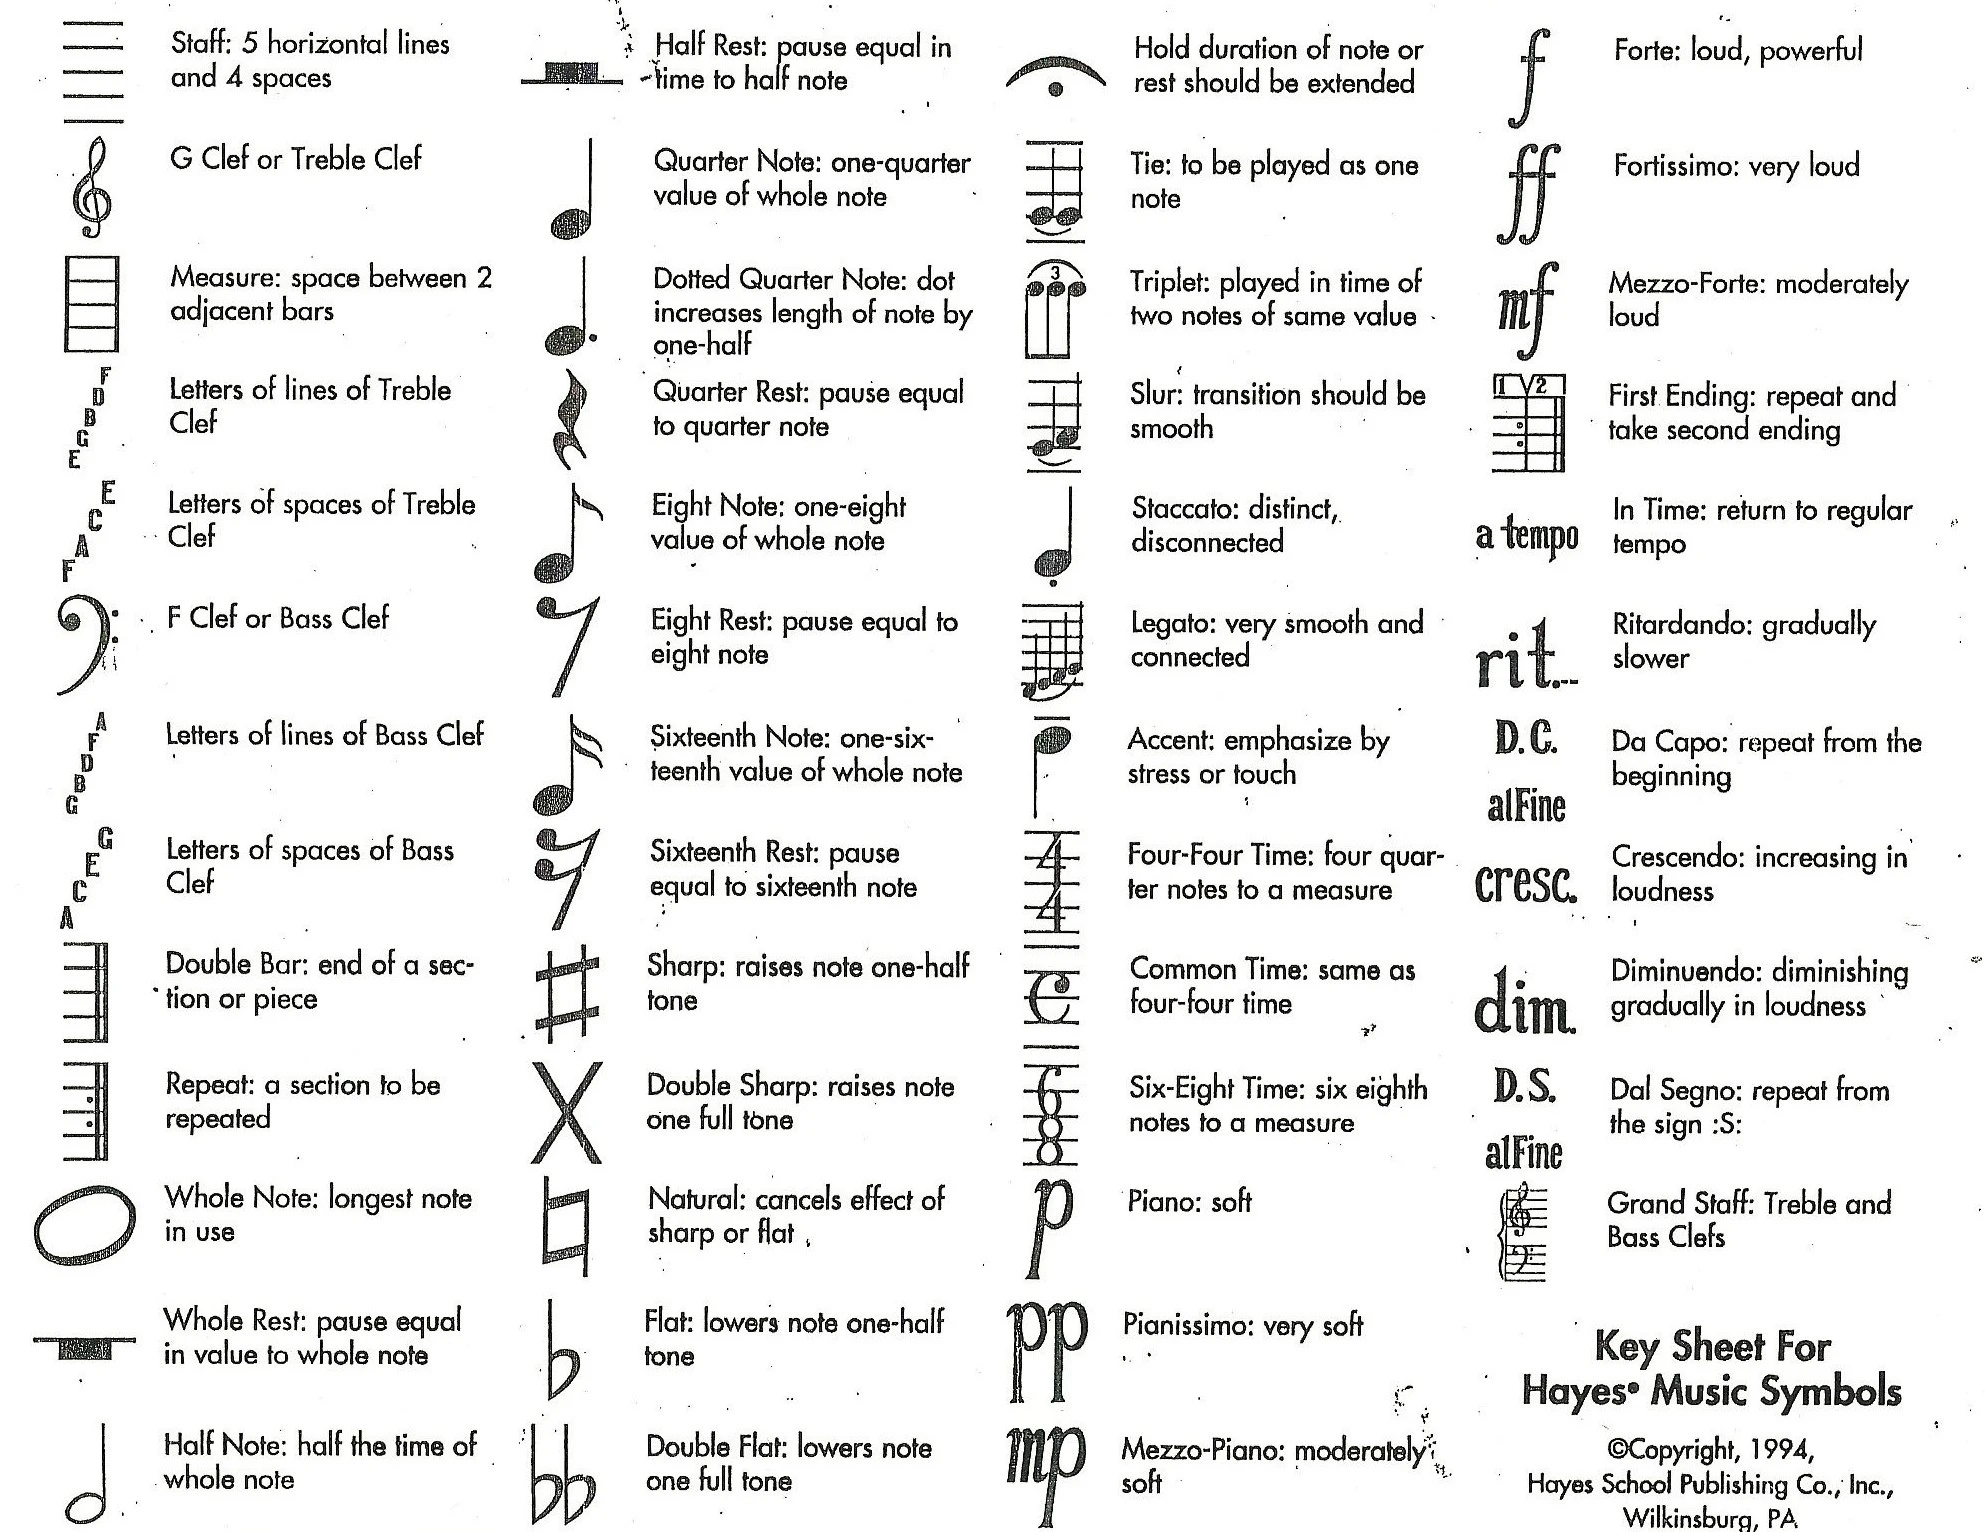 Staff: 5 horizontal lines
and 4 spaces
G Clef or Treble Clef
Measure: space between 2
adjacent bars
F
D
B
G
E
Letters of lines of Treble
Clef
E
C
A
F
Letters of spaces of Treble
Clef
F Clef or Bass Clef
A
F
D
B
G
Letters of lines of Bass Clef
G
E
C
A
Letters of spaces of Bass
Clef
Double Bar: end of a sec-
tion or piece
Repeat: a section to be
repeated
Whole Note: longest note
in use
Whole Rest: pause equal
in value to whole note
Half Note: half the time of
whole note
Half Rest: pause equal in
time to half note
Quarter Note: one-quarter
value of whole note
Dotted Quarter Note: dot
increases length of note by
one-half
Quarter Rest: pause equal
to quarter note
Eight Note: one-eight
value of whole note
Eight Rest: pause equal to
eight note
Sixteenth Note: one-six-
teenth value of whole note
Sixteenth Rest: pause
equal to sixteenth note
Sharp: raises note one-half
tone
Double Sharp: raises note
one full tone
Natural: cancels effect of
sharp or flat
Flat: lowers note one-half
tone
Double Flat: lowers note
one full tone
Hold duration of note or
rest should be extended
Tie: to be played as one
note
3
Triplet: played in time of
two notes of same value
Slur: transition should be
smooth
Staccato: distinct,
disconnected
Legato: very smooth and
connected
Accent: emphasize by
stress or touch
4
4
Four-Four Time: four quar-
ter notes to a measure
C
Common Time: same as
four-four time
6
8
Six-Eight Time: six eighth
notes to a measure
p
Piano: soft
pp
Pianissimo: very soft
mp
Mezzo-Piano: moderately
soft
f
Forte: loud, powerful
ff
Fortissimo: very loud
mf
Mezzo-Forte: moderately
loud
1 2
First Ending: repeat and
take second ending
a tempo
In Time: return to regular
tempo
rit...
Ritardando: gradually
slower
D.C.
alFine
Da Capo: repeat from the
beginning
cresc.
Crescendo: increasing in
loudness
dim.
Diminuendo: diminishing
gradually in loudness
D.S.
alFine
Dal Segno: repeat from
the sign :S:
Grand Staff: Treble and
Bass Clefs
Key Sheet For
Hayes® Music Symbols
©Copyright, 1994,
Hayes School Publishing Co., Inc.,
Wilkinsburg, PA